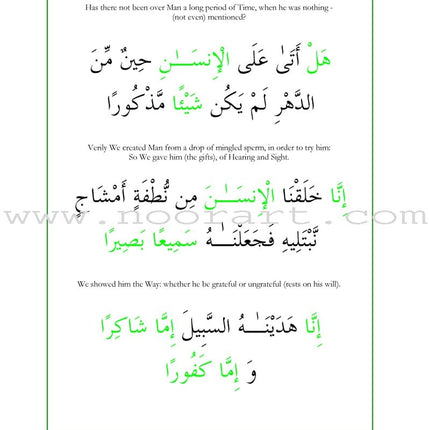 Has there not been over Man a long period of Time, when he was nothing -
(not even) mentioned?
هَلْ أَتَىٰ عَلَى الْإِنسَـٰنِ حِينٌ مِّنَ
الدَّهْرِ لَمْ يَكُن شَيْئًا مَّذْكُورًا
Verily We created Man from a drop of mingled sperm, in order to try him:
So We gave him (the gifts), of Hearing and Sight.
إِنَّا خَلَقْنَا الْإِنسَـٰنَ مِن نُّطْفَةٍ أَمْشَاجٍ
www.noorart.com
نَّبْتَلِيهِ فَجَعَلْنَـٰهُ سَمِيعًا بَصِيرًا
We showed him the Way: whether he be grateful or ungrateful (rests on his will).
إِنَّا هَدَيْنَـٰهُ السَّبِيلَ إِمَّا شَاكِرًا
وَ إِمَّا كَفُورًا